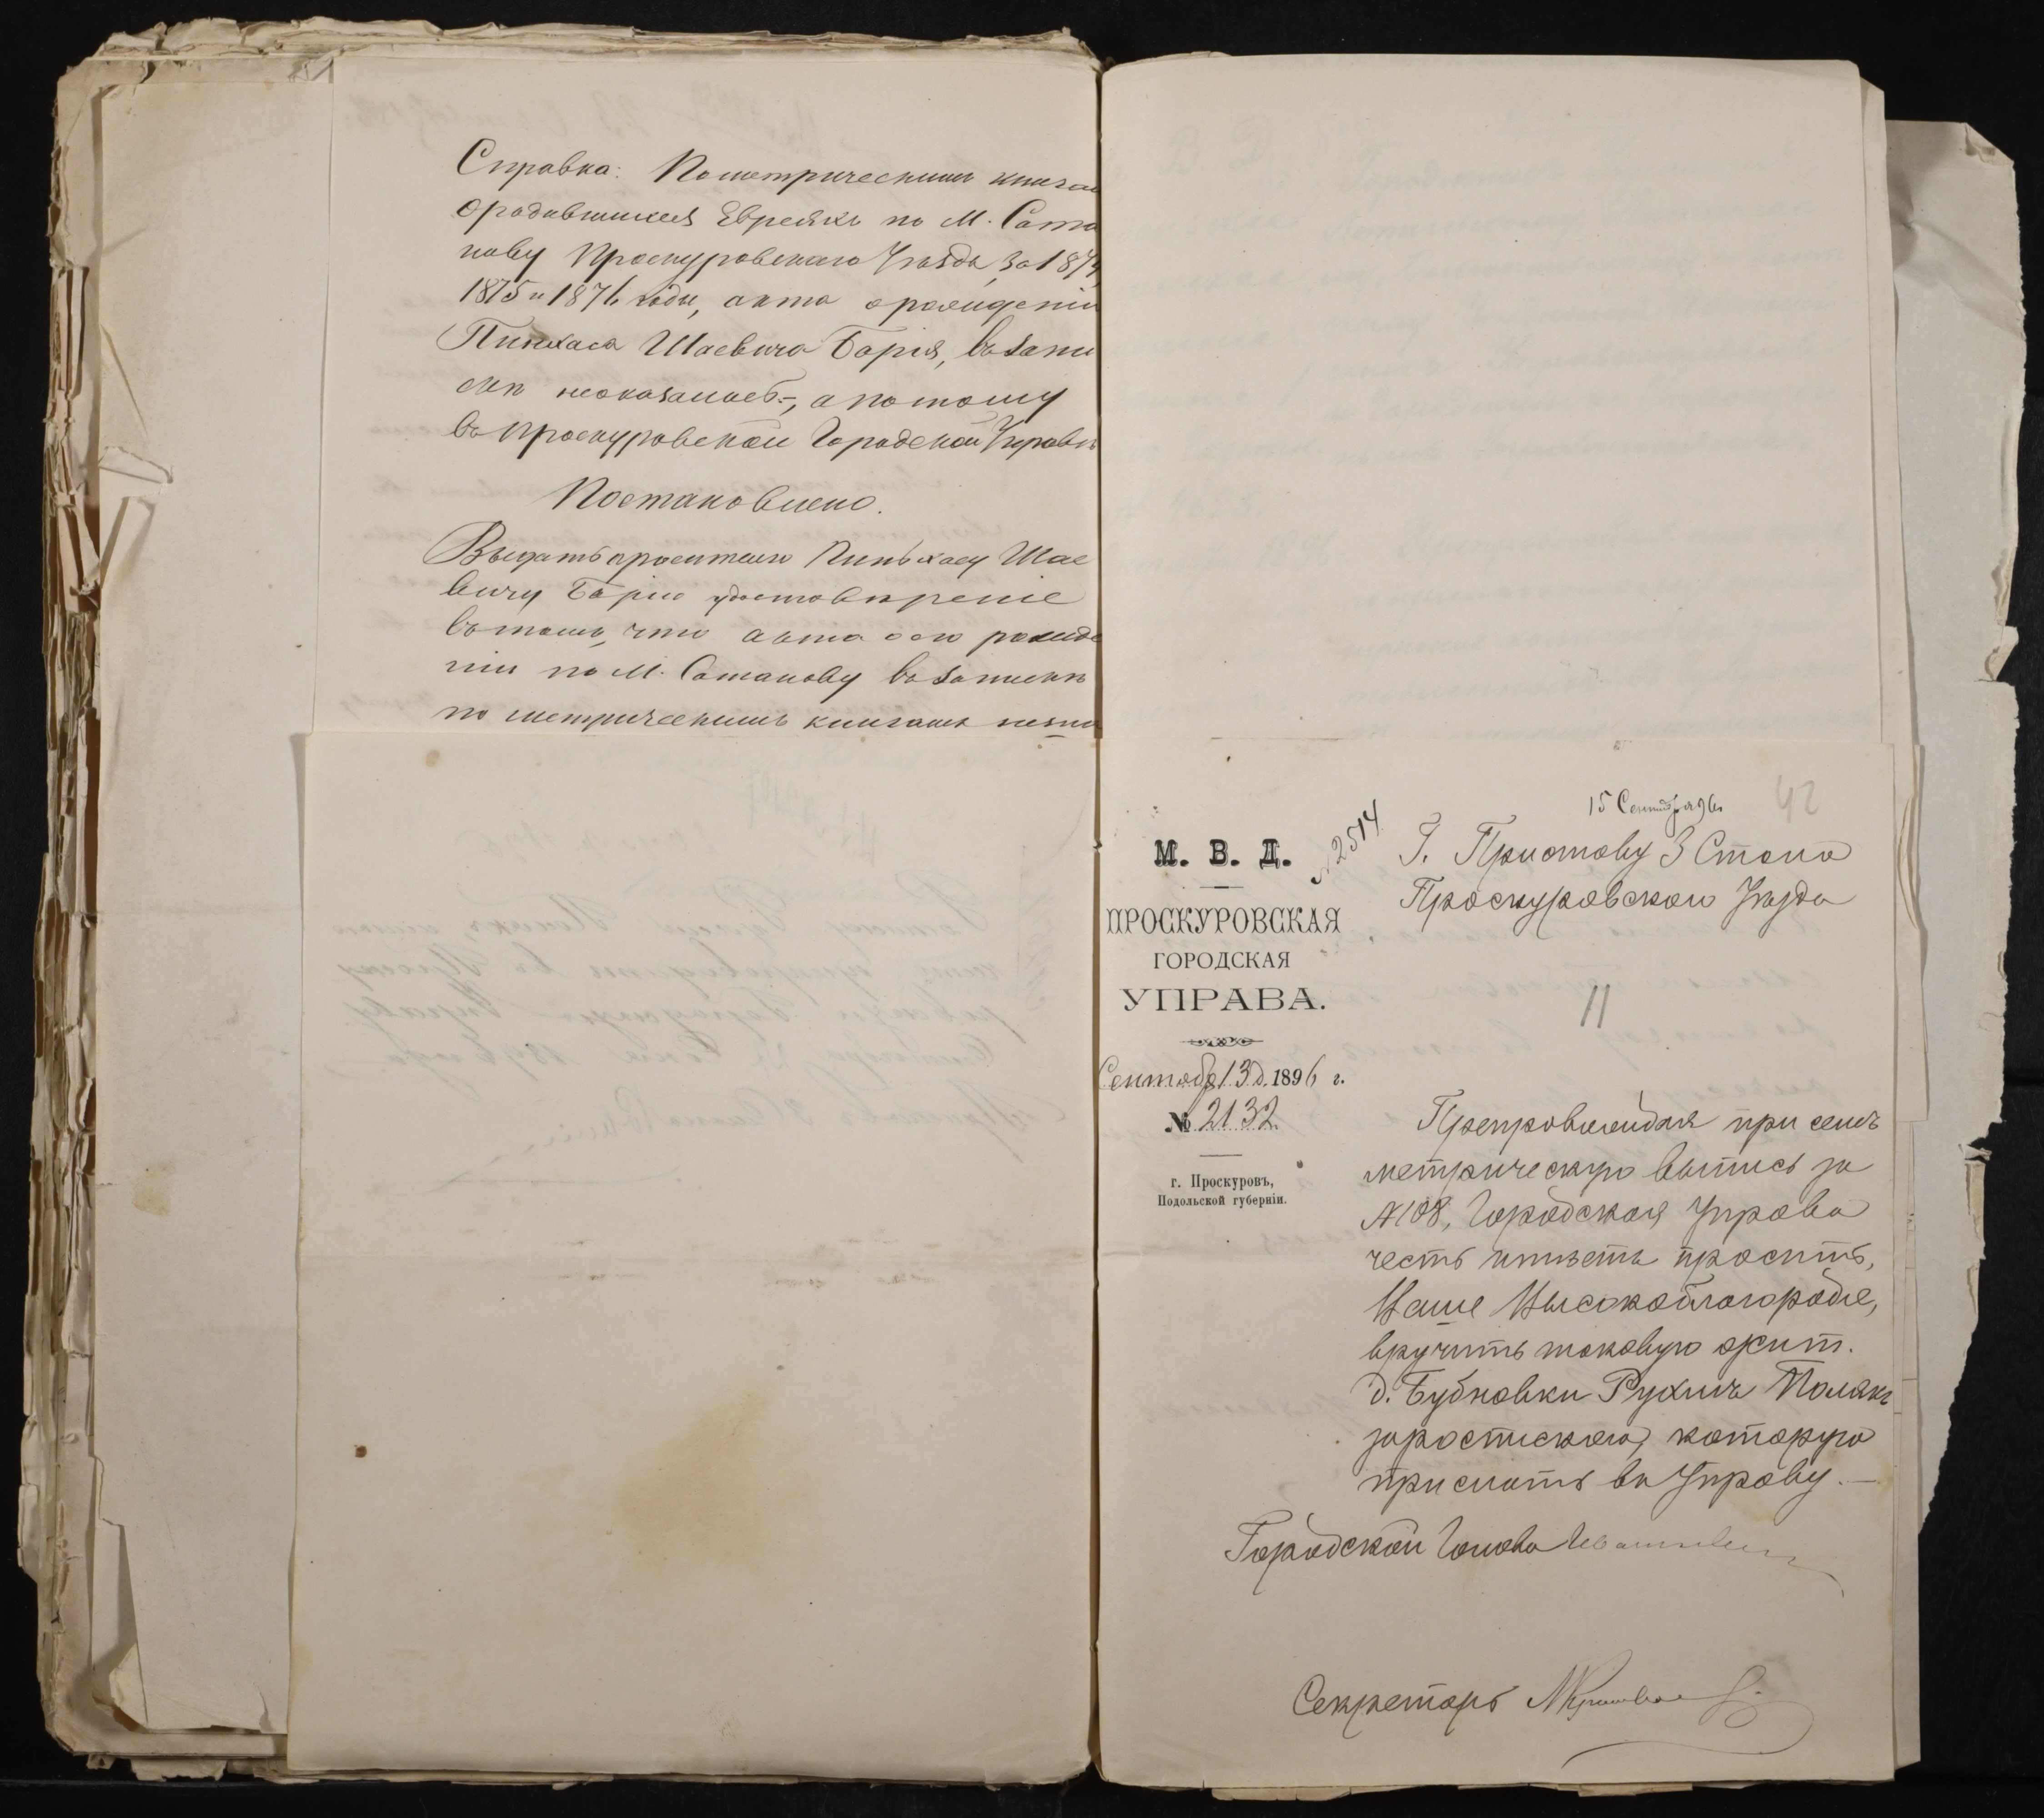 Справка: Пометрическимъ книгам
ородившихся Евреяхъ по М. Сата
нову Проскуровскаго Уѣзда, за 1874,
1875 и 1876 годы, акта орожденіи
Пинхаса Шаевича Барія, възапи
си неоказалось, а потому
въ Проскуровской Городской Управѣ
Постановлено.
Выдать просителю Пиньхасу Шае
вичу Барію удостовѣреніе
въ томъ, что акта о его рожде
ніи по М. Сатанову възаписи
по метрическимъ книгамъ
15 Сентября 96 г.
42
№ 2514
М. В. Д.
ПРОСКУРОВСКАЯ
ГОРОДСКАЯ
УПРАВА.
Сентября 13 д. 1896 г.
№ 2132
г. Проскуровъ,
Подольской губерніи.
Г. Приставу 3 Стана
Проскуровскаго Уѣзда
11
Препровождая при семъ
метрическую выпись за
№ 108, Городская Управа
честь имѣетъ просить,
Ваше Высокоблагородіе,
вручить таковую жит.
д. Бубновки Рухлѣ Полякъ
заростискою, которую
прислать въ Управу. —
Городской Голова
Секретарь